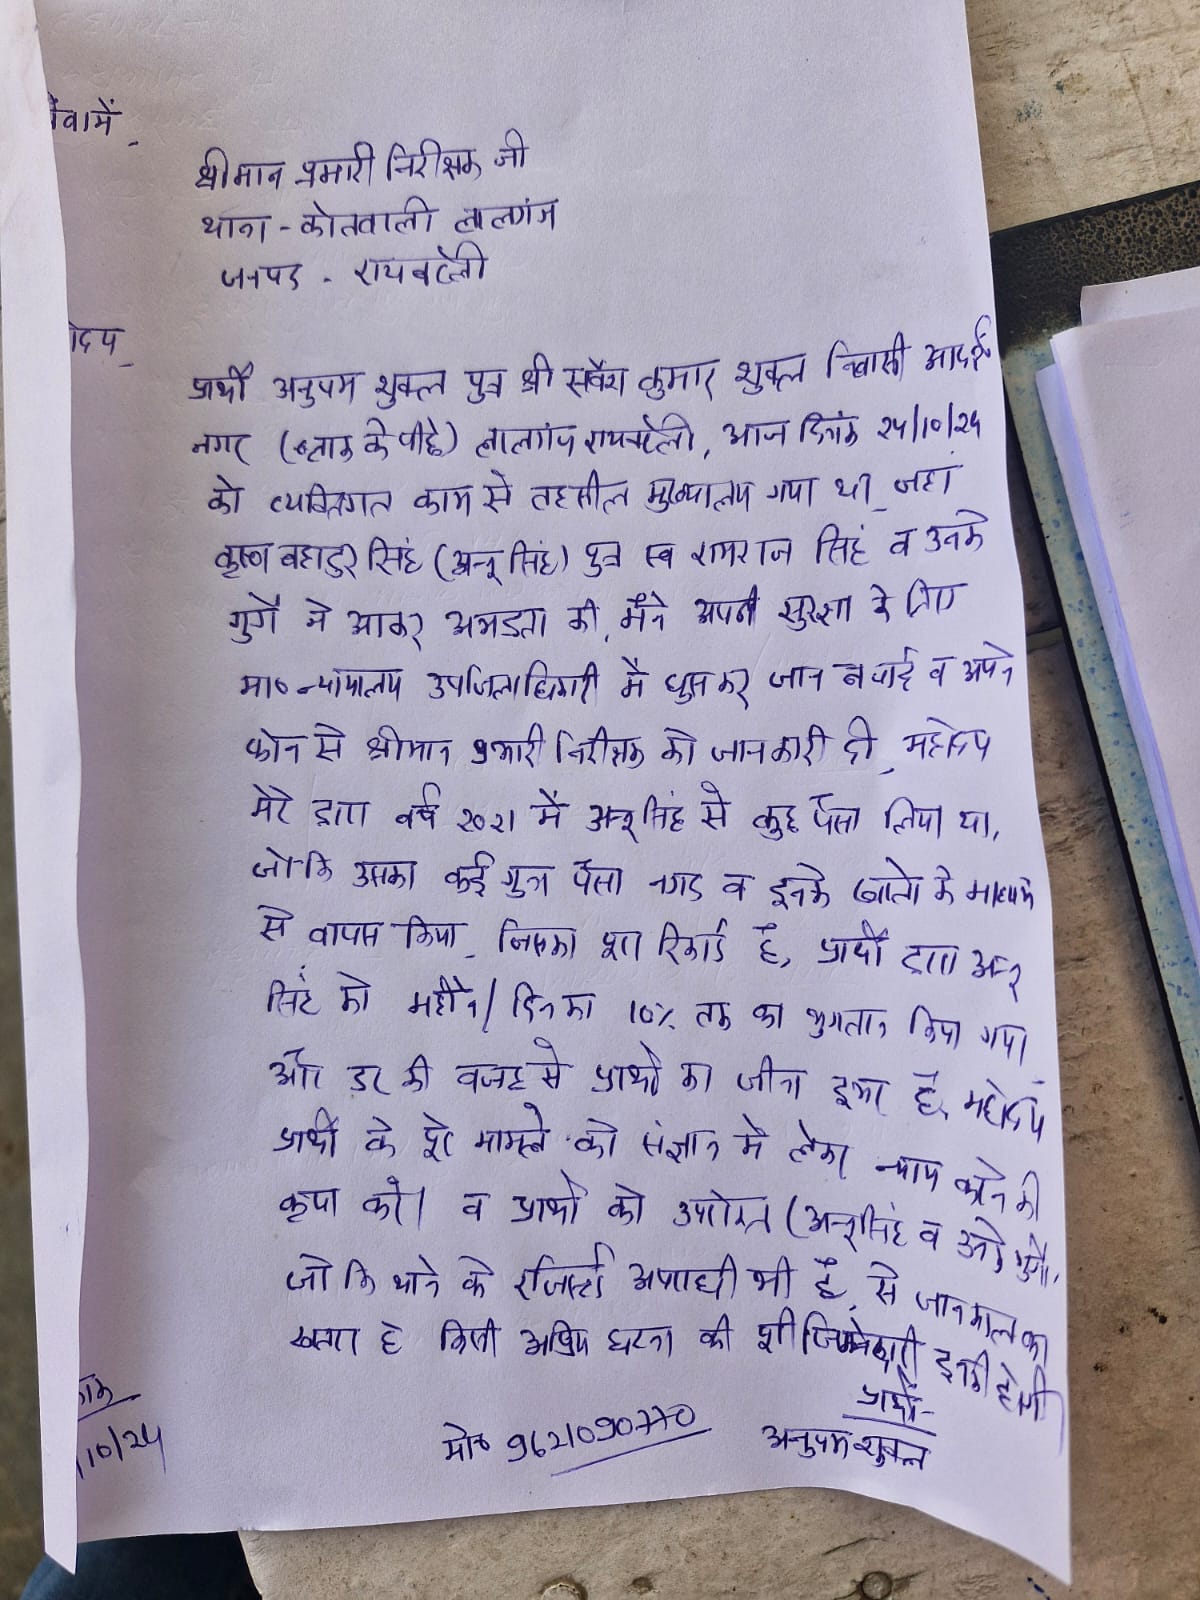 सेवामें,
श्रीमान प्रभारी निरीक्षक जी
थाना - कोतवाली लालगंज
जनपद - रायबरेली
महोदय
प्रार्थी अनुपम शुक्ल पुत्र श्री सर्वेश कुमार शुक्ल निवासी आदर्श
नगर (ब्लाक के पीछे) लालगंज रायबरेली, आज दिनांक 24/10/24
को व्यक्तिगत काम से तहसील मुख्यालय गया था, जहां
कृष्ण बहादुर सिंह (अन्नू सिंह) पुत्र स्व रामराज सिंह व उनके
गुर्गे ने आकर अभद्रता की, मैंने अपनी सुरक्षा के लिए
मा० न्यायालय उपजिलाधिकारी में घुसकर जान बचाई व अपने
फोन से श्रीमान प्रभारी निरीक्षक को जानकारी दी, महोदय
मेरे द्वारा वर्ष 2021 में अन्नू सिंह से कुछ पैसा लिया था,
जोकि उसका कई गुना पैसा नगद व इनके खातो के माध्यम
से वापस किया, जिसका पूरा रिकार्ड है, प्रार्थी द्वारा अन्नू
सिंह को महीने/दिन का 10% तक का भुगतान किया गया
और डर की वजह से प्रार्थी का जीना दूभर है, महोदय
प्रार्थी के पूरे मामले को संज्ञान मे लेकर न्याय करने की
कृपा करें। व प्रार्थी को उपरोक्त (अन्नू सिंह व उनके गुर्गे,
जो कि थाने के रजिस्टर्ड अपराधी भी हैं, से जानमाल का
खतरा है किसी अप्रिय घटना की पूरी जिम्मेदारी इनकी होगी
प्रार्थी-
अनुपम शुक्ल
मो० 9621090770
/10/24